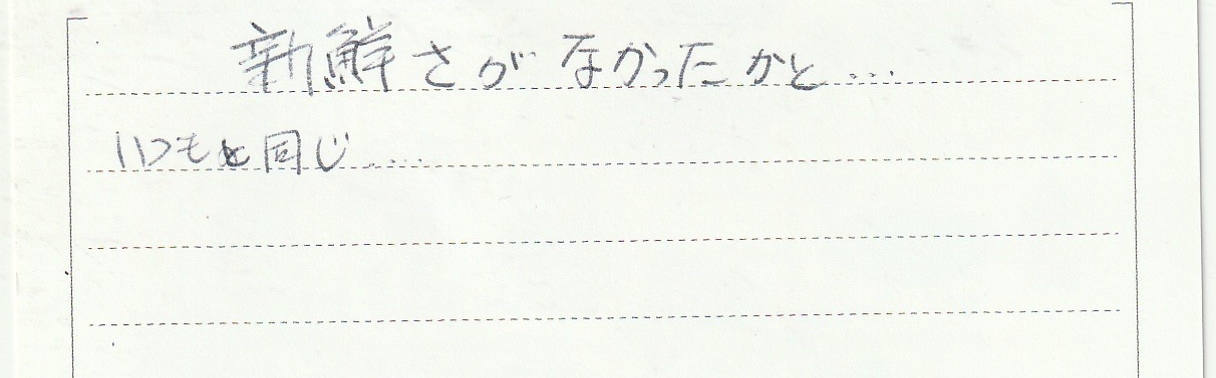 新鮮さがなかったかと…
いつもと同じ....